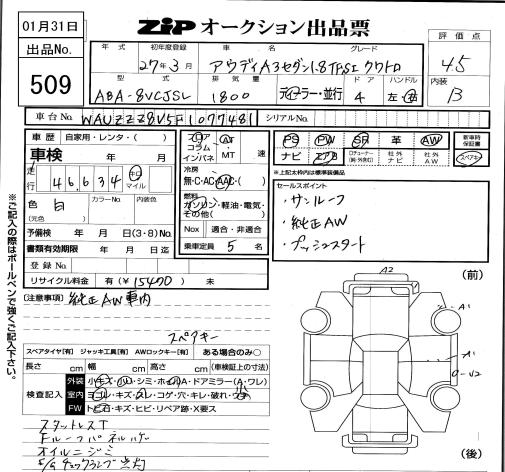 01月31日
ZIP オークション出品票
出品No.
509
年式
初年度登録
車名
グレード
評価点
27年3月
アウディA3セダン1.8TFSIクワトロ
4.5
型式
排気量
ドア
ハンドル
内装
ABA-8VCJSL
1800
ディーラー・並行
4
左・右
B
車台No.
WAUZZZ8V5F1077481
シリアルNo.
車歴
自家用・レンタ・( )
車検
年 月
走行
46,634
キロ
マイル
色
白
(元色)
カラーNo.
内装色
予備検
年 月 日(3・8)No.
書類有効期限
年 月 日迄
登録No.
リサイクル料金
有(¥15470)
未
フロア
コラム
インパネ
AT
MT
速
冷房
無・C・AC・AAC・( )
燃料
ガソリン・軽油・電気・
その他( )
Nox
適合・非適合
乗車定員
5
名
PS
PW
SR
革
AW
ナビ
エアB
社外
ナビ
社外
AW
新車時
保証書
スペアキー
※上記太枠内は標準装備品
セールスポイント
・サンルーフ
・純正AW
・プッシュスタート
※ご記入の際はボールペンで強くご記入下さい。
【注意事項】
純正AW車内
スペアキー
スペアタイヤ[有]
ジャッキ工具[有]
AWロックキー[有]
ある場合のみ○
長さ
cm
幅
cm
高さ
cm
(車検証上の寸法)
検査記入
外装
小キズ・小凹・シミ・ホイルA・ドアミラー(A・ワレ)
室内
ヨゴレ・キズ・スレ・コゲ・穴・キレ・破れ・
FW
トビ石・キズ・ヒビ・リペア跡・X要ス
スタットレスT
Fルーフパネルハゲ
オイルニジミ
E/Gチェックランプ点灯
(前)
A2
A1
A1
(後)